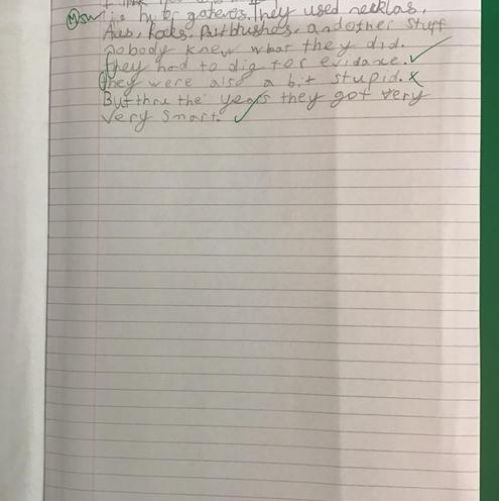 hunter gaterers. They used necklas,
Rocks, Paitbrushes, and other stuff
nobody knew what they did.
They had to dig for evidance.
They were also a bit stupid.
But thru the years they got very
very smart.